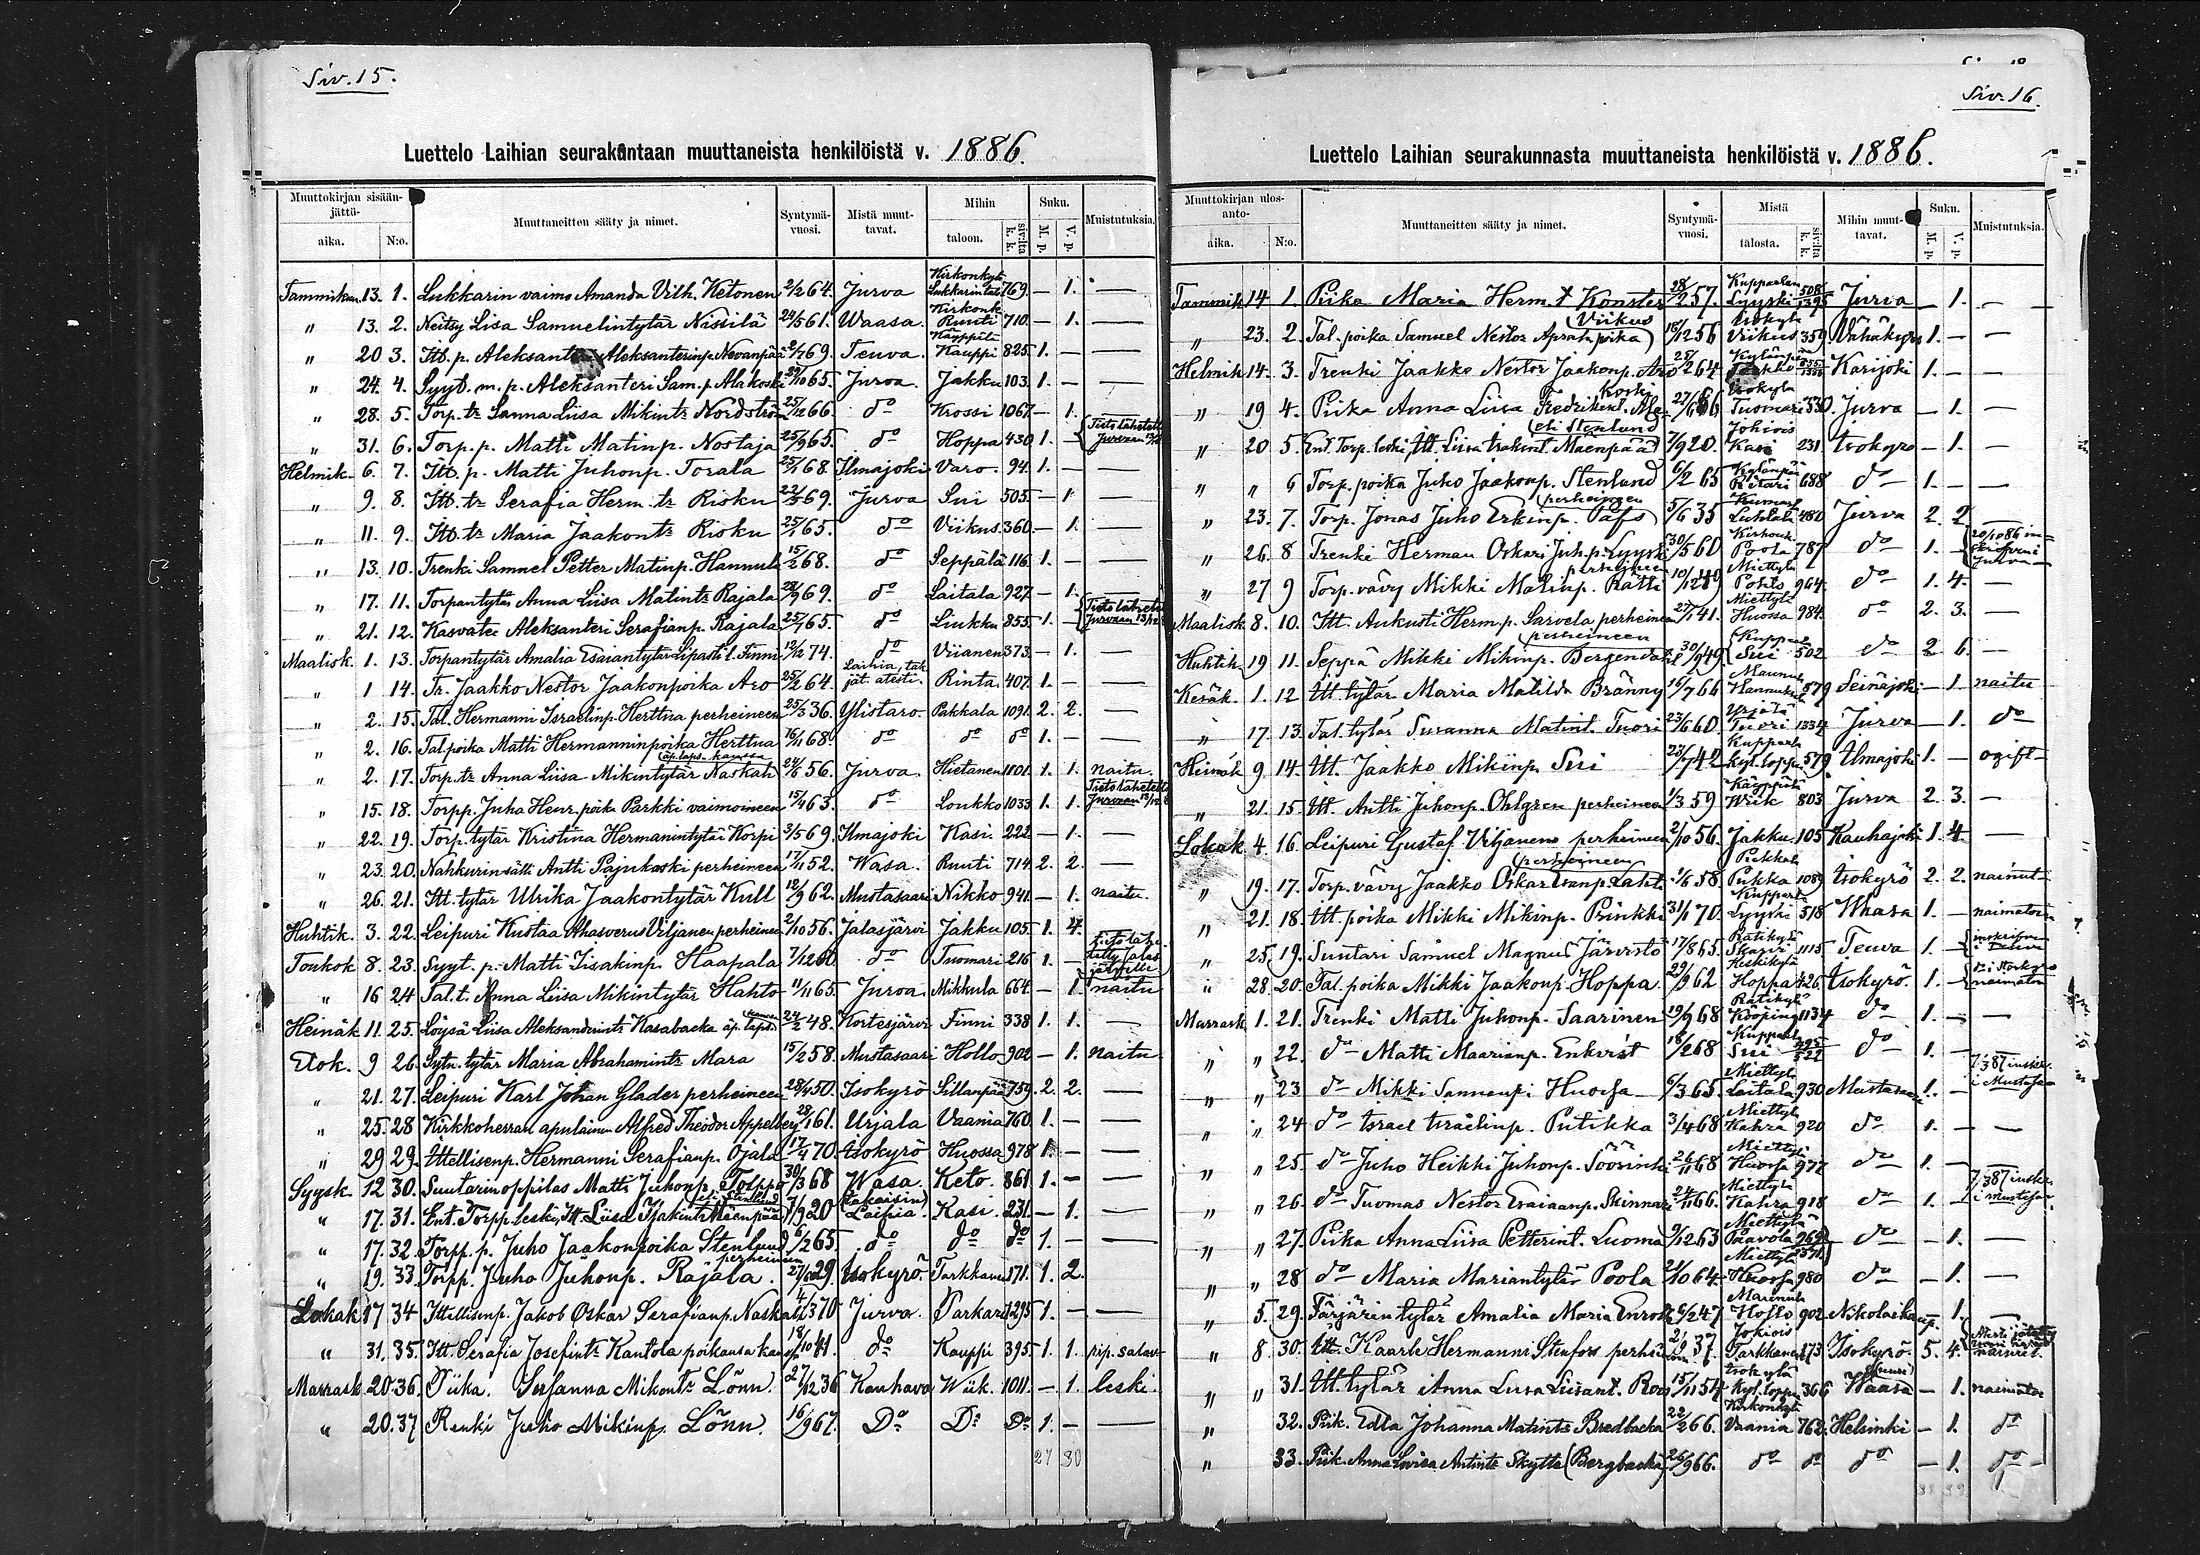 Siv. 15.
Luettelo Laihian seurakuntaan muuttaneista henkilöistä v. 1886.
Muuttokirjan sisäänjättö- aika. N:o. Muuttaneitten sääty ja nimet. Syntymävuosi. Mistä muuttavat. Mihin taloon. k. k. sivulta Suku. M. p. V. p. Muistutuksia.
Tammikuu 13. 1. Lukkarin vaimo Amanda Vilh. Ketonen 2/2 64. Jurva Kirkonkylä Lukkarin talo 769. — 1. —
„ 13. 2. Neitsy Lisa Samuelintytär Nissilä 24/5 61. Waasa. Kirkonk. Ruuti 710. — 1. —
„ 20 3. Itt. p. Aleksanteri Aleksanterinp. Nevanpää 2/7 69. Teuva. Käyppilä Kauppi 825. 1. — —
„ 24. 4. Syyt. m. p. Aleksanteri Sam. p. Alakoski 27/10 65. Jurva. Jakku 103. 1. — —
„ 28. 5. Torp. tr Sanna Liisa Mikintr Nordström 25/12 66. do Krossi 1067. — 1.
„ 31. 6. Torp. p. Matti Matinp. Nostaja 25/9 65. do Hoppa 430. 1. — Tieto lähetetty Jurvaan
Helmik. 6. 7. Itt. p. Matti Juhonp. Torala 25/1 68. Ilmajoki Varo. 94. 1. — —
„ 9. 8. Itt. tr Serafia Herm. tr Risku 22/3 69. Jurva Sui 505. — 1. —
„ 11. 9. Itt. tr Maria Jaakontr Risku 25/1 65. do Viikus. 360. — 1. —
„ 13. 10. Trenki Samuel Petter Matinp. Hannula 15/2 68. do Seppälä 116. 1. — —
„ 17. 11. Torpantytär Anna Liisa Matintr Rajala 28/9 69. do Laitala 927. — 1.
„ 21. 12. Kasvatec Aleksanteri Serafianp. Rajala 25/7 65. do Liukku 855. 1. — Tieto lähetetty Jurvaan 13/12
Maalisk. 1. 13. Torpantytär Amalia Esaiantytär Lipasti l. Finni 12/12 74. do Viianen 373. — 1. —
„ 1 14. Tr. Jaakko Nestor Jaakonpoika Aro 25/2 64. Laihia, tak. jät. atesti. Rinta. 407. 1. — —
„ 2. 15. Tal. Hermanni Israelinp. Herttua perheineen 25/3 36. Ylistaro. Pakkala 1091. 2. 2. —
„ 2. 16. Tal. poika Matti Hermanninpoika Herttua 16/11 68. do do do 1. — —
„ 2. 17. Torp. tr Anna Liisa Mikintytär Naskali äp. laps. kanssa 24/6 56. Jurva. Hietanen 1101. 1. 1. naitu.
„ 15. 18. Torpp. Juha Henr. poika Parkki vaimoineen 15/4 63. do Loukko 1033 1. 1. Tieto lähetetty Jurvaan 13/12
„ 22. 19. Torp. tytär Kristina Hermanintytär Korpi 3/5 69. Ilmajoki Kasi. 222. — 1. —
„ 23. 20. Nahkurinsälli Antti Pajukoski perheineen 17/11 52. Wasa. Ruuti 714. 2. 2. —
„ 26. 21. Itt. tytär Ulrika Jaakontytär Kull 12/9 62. Mustasaari Nikko 941. — 1. naitu.
Huhtik. 3. 22. Leipuri Kustaa Ahasverus Viljanen perheineen 2/10 56. Jalasjärvi Jakku 105. 1. 4.
Toukok 8. 23. Syyt. p. Matti Iisakinp. Haapala 7/12 60 do Tuomari 216 1. — Tieto lähetetty Jalasjärvelle
„ 16 24 Tal. t. Anna Liisa Mikintytär Hahto 11/11 65. Jurva. Mikkula 664. — 1. naitu
Heinäk 11. 25. Löysä Liisa Aleksanderintr Kasabacka äp. laps. kanssa 24/2 48. Kortesjärvi Finni 338 1. 1. —
Elok. 9 26. Sytn. tytär Maria Abrahamintr Mara 15/2 58. Mustasaari Hollo 902 — 1. naitu
„ 21. 27. Leipuri Karl Johan Glader perheineen 28/4 50. Isokyrö Sillanpää 759. 2. 2. —
„ 25. 28 Kirkkoherran apulainen Alfred Theodor Appelberg 28/1 61. Urjala Vaania 760. 1. — —
„ 29 29. Ittellisenp. Hermanni Serafianp. Ojala 17/4 70. Isokyrö Huossa 978 1. — —
Syysk. 12 30. Suutarinoppilas Matti Juhonp. Tolppo 30/3 68 Wasa. Keto. 861 1. — —
„ 17. 31. Ent. Torpp. leski, Itt. Liisa Isakintr Mäenpää (eli Stenlund) 7/9 20 (takaisin) Laihia. Kasi. 231. — 1. —
„ 17. 32. Torpp. p. Juho Jaakonpoika Stenlund 6/2 65. do do do 1. — —
„ 19. 33. Torpp. Juho Juhonp. Rajala. perheineen 27/10 29. Isokyrö. Tarkkanen 171. 1. 2.
Lokak 17 34 Ittellisenp. Jakob Oskar Serafianp. Naskali 4/3 70 Jurva. Parkari 1295 1. — —
„ 31. 35. Itt. Serafia Josefintr Kantola poikansa kanssa 18/10 41. do Kauppi 395. 1. 1 rip. salav.
Marrask. 20. 36. Piika. Susanna Mikontr Lönn. 27/12 36 Kauhava Wiik. 1011. — 1. leski.
„ 20. 37 Renki Juho Mikinp. Lönn. 16/9 67. Do Do Do 1. — —
27 30
Siv. 16.
Luettelo Laihian seurakunnasta muuttaneista henkilöistä v. 1886.
Muuttokirjan ulosanto- aika. N:o. Muuttaneitten sääty ja nimet. Syntymävuosi. Mistä talosta. k. k. sivulta Mihin muuttavat. Suku. M. p. V. p. Muistutuksia.
Tammik 14 1. Piika Maria Herm. t Konster 28/2 57. Kupparla Lyyski 508 1395 Jurva — 1. —
„ 23. 2. Tal. poika Samuel Nestor Apram poika (Viikus) 18/12 56 Isokylä Viikus 359 Vähäkyrö 1. — —
Helmik 14. 3. Trenki Jaakko Nestor Jaakonp. Aro 25/2 64 Kylänpää Karijoki 1. — —
„ 19 4. Piika Anna Liisa Fredrikint. Ala-Koski 27/6 66 Isokylä Tuomari 330. Jurva — 1. —
„ 20 5. Ent. Torp. leski, Itt. Liisa Isakint. Mäenpää (eli Stenlund) 7/9 20. Jokiois Kasi 231 Isokyrö — 1. —
„ „ 6 Torp. poika Juho Jaakonp. Stenlund 6/2 65 Kylänpää Ritari 688 do 1. — —
„ 23. 7. Torp. Jonas Juho Erkinp. Päfs perheineen 5/6 35 Luhtala 480 Jurva 2. 2.
„ 26. 8 Trenki Herman Oskari Juh. p. Lyyski 30/5 60 Kirkonk. Poola 787 do 1. — 20/10 86 inskrifven i Jurva
„ 27 9 Torp. vävy Mikki Matinp. Rätti perheineen 10/12 49 Miettylä Pohto 964. do 1. 4. —
Maalisk 8. 10. Itt. Aukusti Herm. p. Sarvela perheineen 27/1 41. Miettylä Huossa 984. do 2. 3. —
Huhtik 19 11. Seppä Mikki Mikinp. Bergendahl perheineen 30/9 49 Kupparla Sui 502 do 2 6. —
Kesäk. 1. 12 Itt. tytär Maria Matilda Bränny 16/7 66 Maunula Hannuka 879 Seinäjoki — 1. naitu
„ 17. 13. Tal. tytär Susanna Matint. Tuori 23/6 60 Urjala Tuori 1334 Jurva — 1. do
Heinäk 9 14. Itt. Jaakko Mikinp. Sui 23/7 42 Kupparla kyl. lopp. 579 Ilmajoki 1. — ogift
„ 21. 15 Itt. Antti Juhonp. Ohlgren perheineen 1/3 59 Käyppälä Wiik 803 Jurva 2. 3. —
Lokak 4. 16. Leipuri Gustaf Viljanen perheineen 2/10 56. Jakku 105 Kauhajoki 1. 4. —
„ 19. 17. Torp. vävy Jaakko Oskar Esanp. Lahti (perheineen) 1/6 58. Pukkala Pukka 1089 Isokyrö 2. 2. nainut
„ 21. 18. Itt. poika Mikki Mikinp. Prinkki 31/1 70. Kupparla Lyyski 518 Waasa 1. — naimaton
„ 25. 19. Suutari Samuel Magnus Järvistö 17/8 65. Ratikylä Skarvi 1115. Teuva 1. — inskrifven i Teuva
„ 28. 20. Tal. poika Mikki Jaakonp. Hoppa 29/9 62 Keskikylä Hoppa 426. Isokyrö. 1. — do i Storkyro naimaton
Marrask 1. 21. Trenki Matti Juhonp. Saarinen 29/9 68 Ratikylä Kööpinen 1134 do 1. — —
„ „ 22. do Matti Maarianp. Enkvist 18/2 68 Kupparla Sui 522 do 1. —
„ „ 23 do Mikki Sannanp. Huossa 6/3 65. Miettylä Laitala 930 Mustasaari 1. — 7/3 87 inskr. i Mustasa.
„ „ 24 do Israel Israelinp. Putikka 3/4 68 Miettylä Kahra 920 do 1. — —
„ „ 25. do Juho Heikki Juhonp. Söörinki 26/11 68 Miettylä Huossa 977 do 1. — —
„ „ 26. do Tuomas Nestor Esaianp. Skinnari 24/11 66. Miettylä Kahra 918 do 1. — 7/3 87 inskr. i Mustasa.
„ „ 27. Piika Anna Liisa Petterint. Luoma 9/12 63 Miettylä Paavola 969 do — 1. —
„ „ 28 do Maria Mariantytär Poola 21/10 64. Miettylä Huossa 980 do — 1. —
„ 5. 29. Färjärin tytär Amalia Maria Enroth 6/2 47 Maunula Hollo 902. Nikolaikaup. — 1. —
„ 8 30. Itt. Kaarle Hermanni Stenfors perheineen 2/1 37. Jokiois Tarkkanen 173 Isokyrö. 5. 4. nainut.
„ „ 31. Itt. tytär Anna Liisa Liisant. Roos 15/11 54 Isokylä Kyl. lopp. 366 Waasa — 1. naimaton
„ 32. Piik. Edla Johanna Matintr Bredbacka 22/2 66. Kirkonkylä Vaania 762. Helsinki — 1. do
„ 33. Piik. Anna Lovisa Antintr Skytte (Bergbacka) 26/9 66. do do do — 1. do